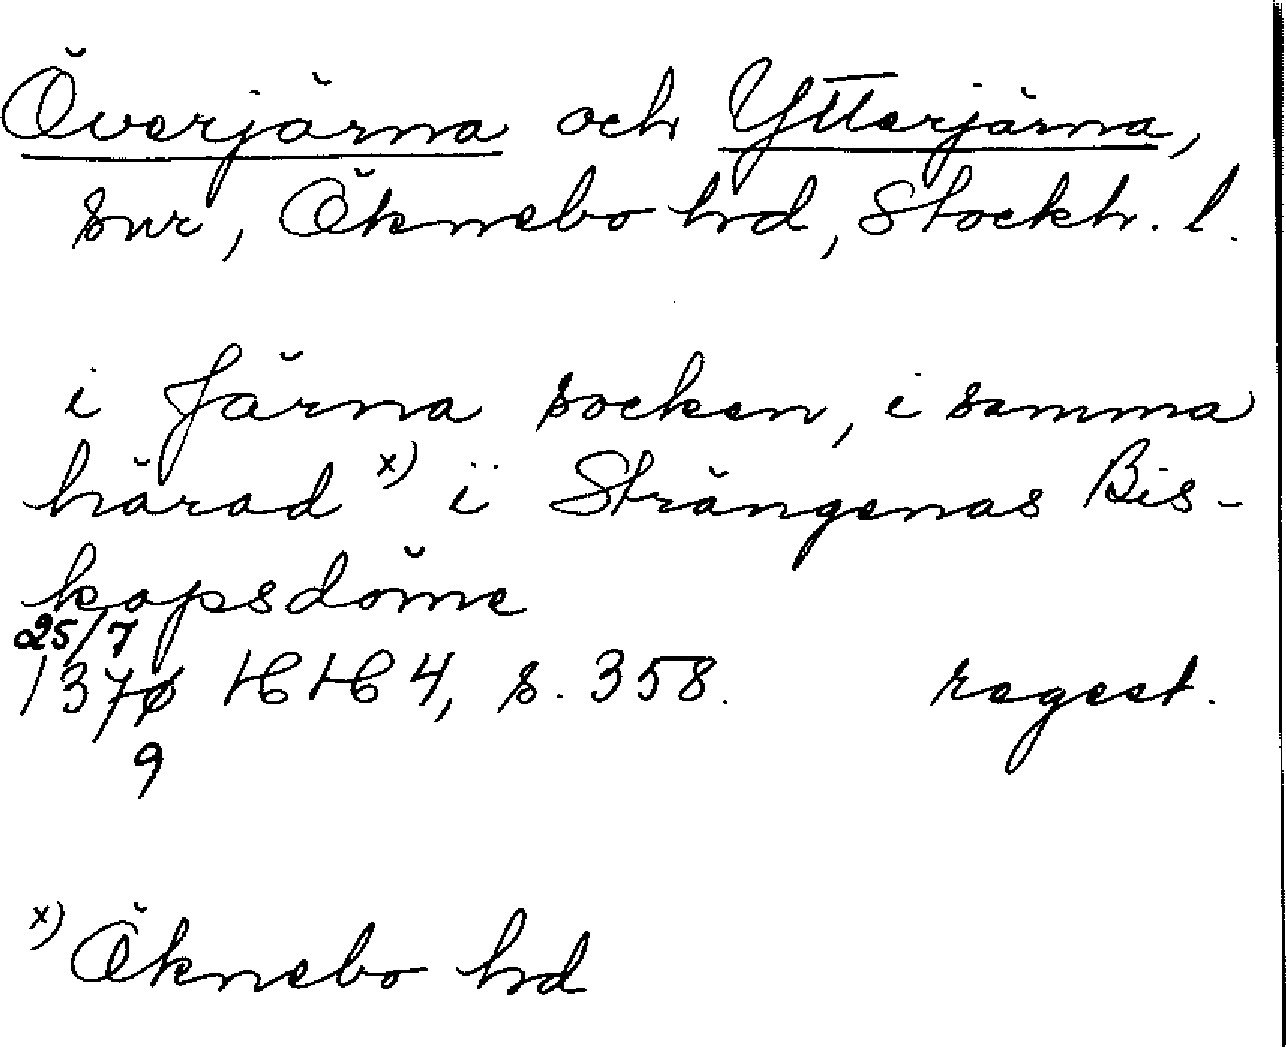 Överjärna och Ytterjärna,
snr, Öknebo hrd, Stockh. l.
i Järna socken, i samma
härad x) i Strängenas Bis-
kopsdöme
25/7
1370 HH 4, s. 358. regest.
9
x) Öknebo hrd